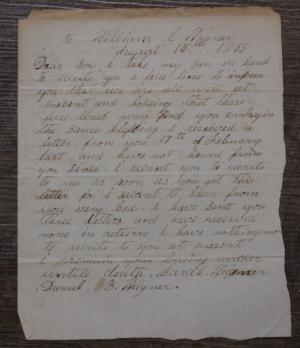 to William C Wagner
August 18th 1855
Dear Son I take my pen in hand
to write you a few lines to inform
you that we are all well at
present and hoping that these
few lines may find you enjoying
the same blessing I received a
letter from you 17th of February
last and have not heard from
you since I want you to write
to me as soon as you get this
letter for I want to hear from
you very bad I have sent you
letters and have received
none in return I have nothing more
to write to you at present
I remain your loving mother
untill death. Sarah
Daniel B.